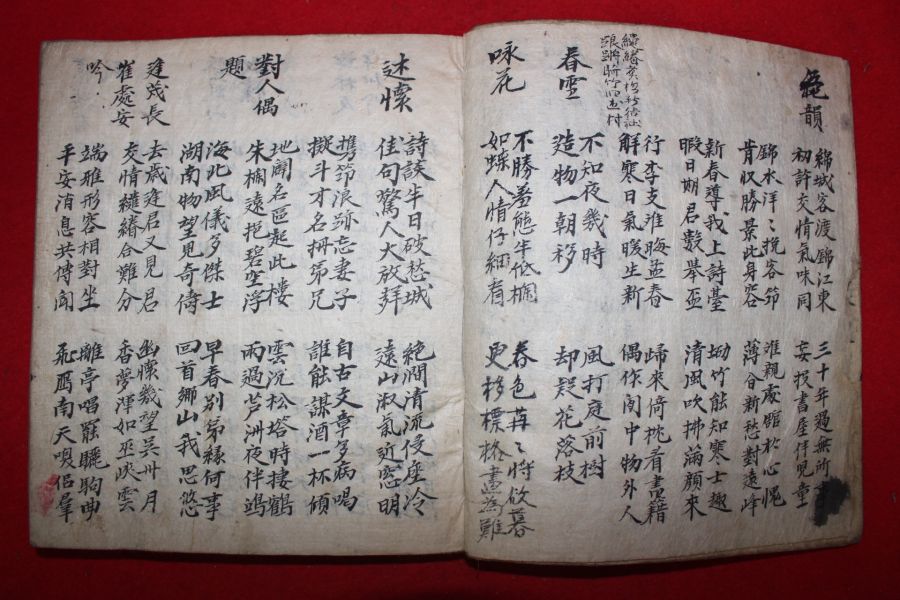 絶韻
錦城客渡錦江東
三十年過無所
初許交情氣味同
妄投書屋伴児童
錦水洋〻挽客節
難親處館於心愧
肯收勝景此身容
薄合新愁對遠峰
新春導我上詩臺
坳竹能知寒士趣
暇日期君數擧盃
清風吹拂滿顔來
行李支離晦孟春
歸來倚枕看書籍
解寒日氣暖生新
偶作閑中物外人
春雪
不知夜幾時
風打庭前樹
造物一朝移
却疑花落枝
咏花
不勝羞態半低欄
春色苒〻將欲暮
如蝶人情仔細看
更移標格畫為難
述懷
詩談半日破愁城
絶澗清流侵座冷
佳句驚人大放
遠山淑氣近窓明
携筇浪跡忘妻子
自古文章多病喝
擬斗才名拇弟兄
誰能謀酒一杯傾
對人偶題
地闢名區起此樓
雲沉松塔時捿鶴
朱欄遠挹碧空浮
雨過芦洲夜伴鴻
海北風儀多傑士
早春別第緣何事
湖南物望見奇儔
回首鄉山我思悠
逢茂長崔處安吟
去歲逢君又見君
幽懷幾望吳州月
交情繾綣合難分
香夢渾如巫峽雲
端雅形容相對坐
離亭唱罷驪駒曲
平安消息共傳聞
飛鴈南天喚侶羣